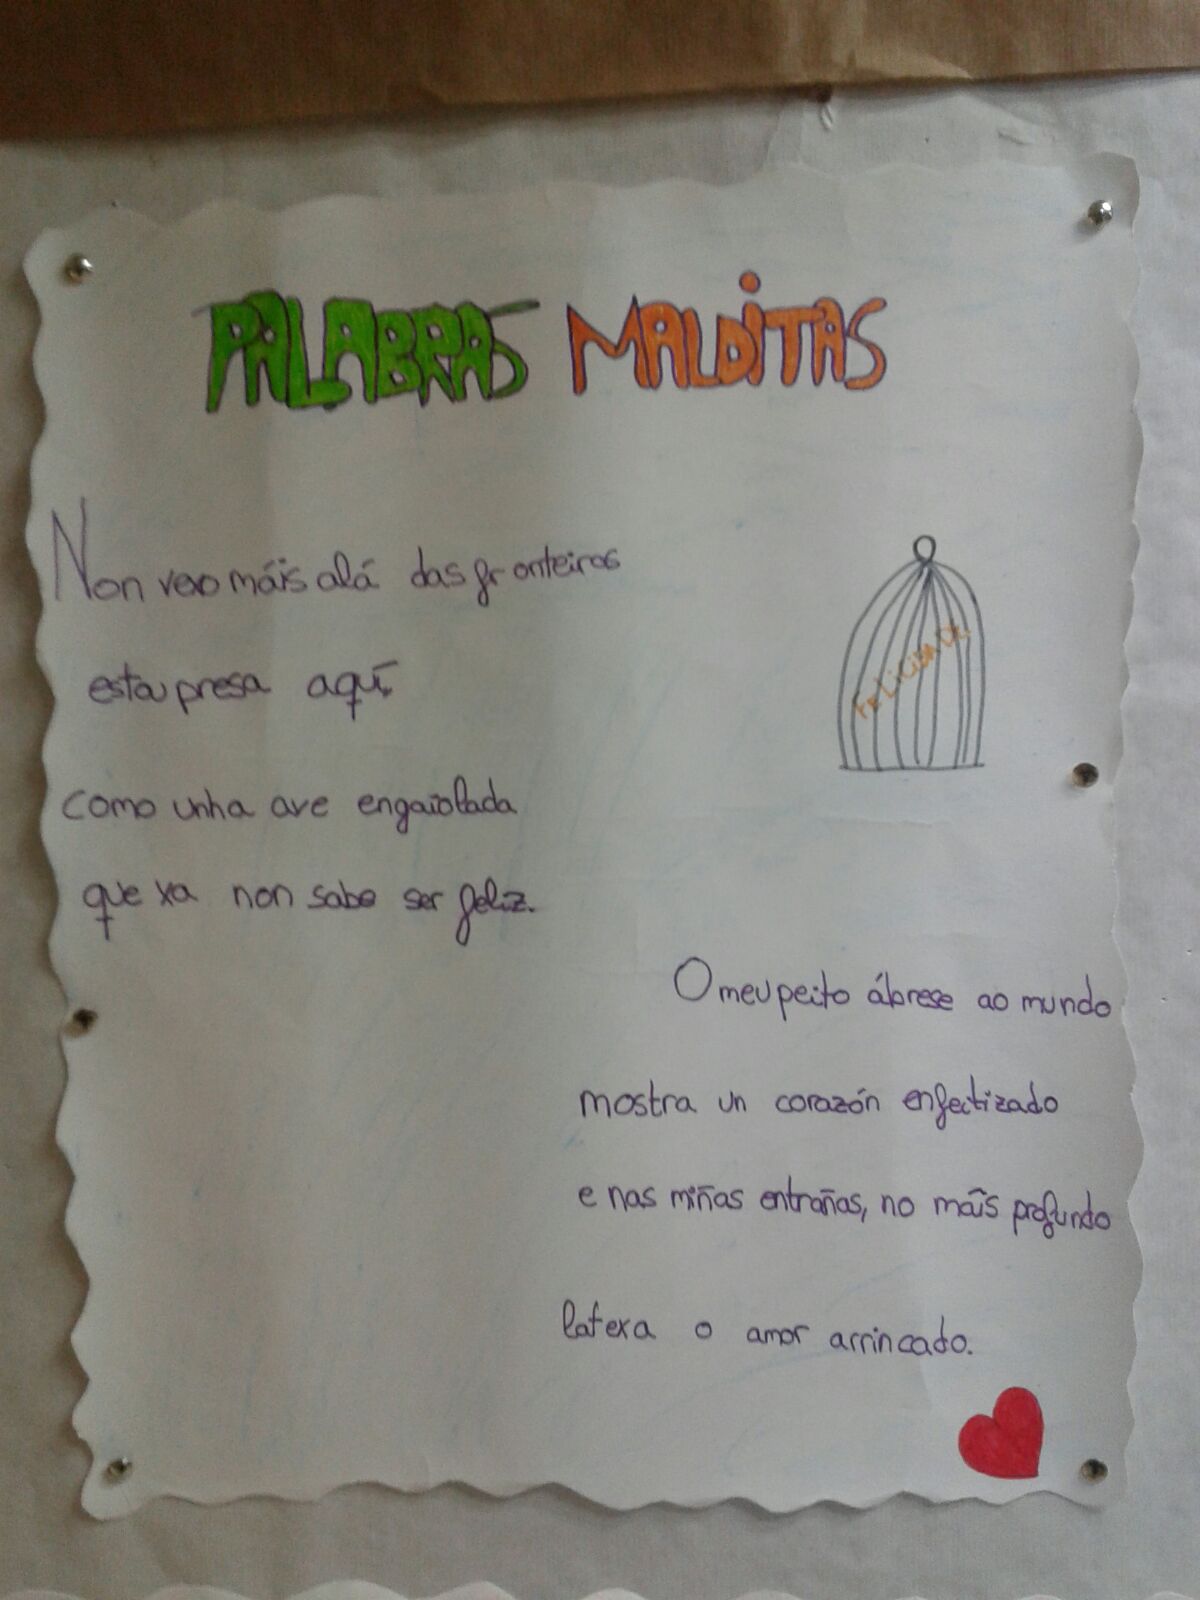 PALABRAS MALDITAS
Non vexo máis alá das fronteiras
estou presa aquí
como unha ave engaiolada
que xa non sabe ser feliz.
FELICIDADE
O meu peito ábrese ao mundo
mostra un corazón enfectizado
e nas miñas entrañas, no máis profundo
latexa o amor arrincado.